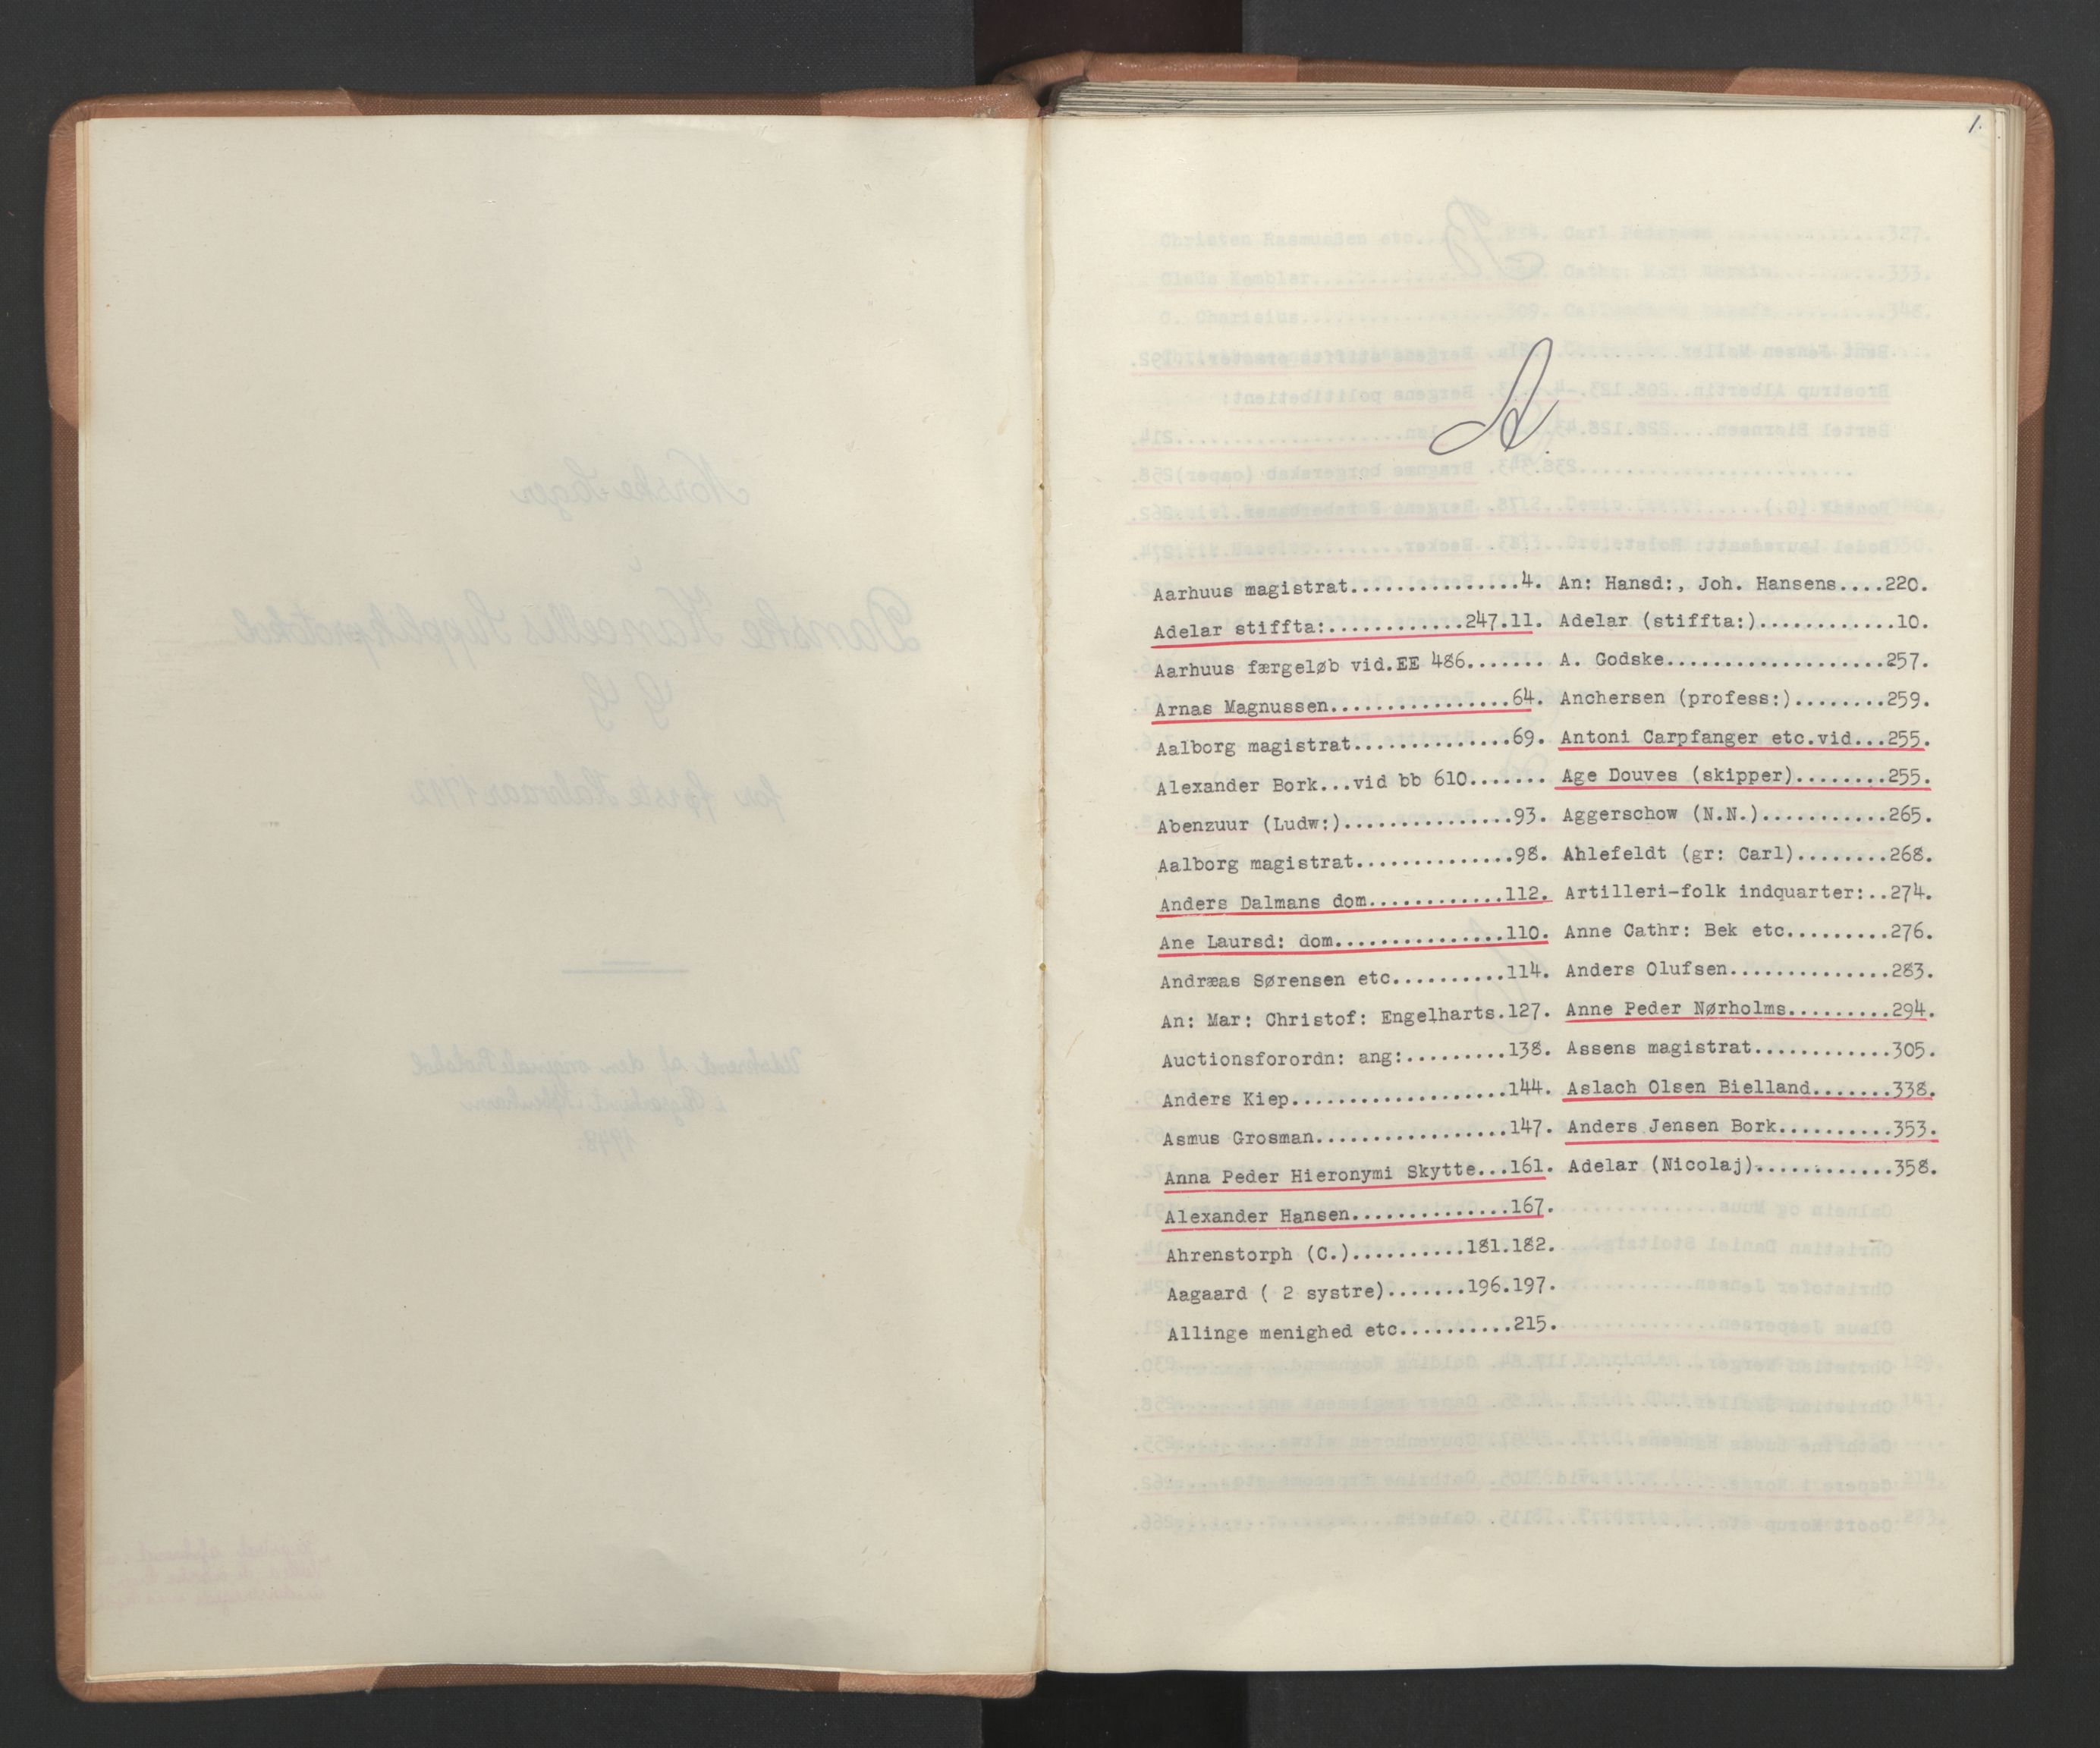 1.
A.
Aarhuus magistrat...............4.
Adelar stiffta:............247.11.
Aarhuus færgeløb vid.EE 486.......
Arnas Magnussen................64.
Aalborg magistrat..............69.
Alexander Bork...vid bb 610.......
Abenzuur (Ludw:)...............93.
Aalborg magistrat..............98.
Anders Dalmans dom............112.
Ane Laursd: dom...............110.
Andræas Sørensen etc..........114.
An: Mar: Christof: Engelharts.127.
Auctionsforordn: ang:.........138.
Anders Kiep...................144.
Asmus Grosman.................147.
Anna Peder Hieronymi Skytte...161.
Alexander Hansen..............167.
Ahrenstorph (C.)..........181.182.
Aagaard ( 2 systre).......196.197.
Allinge menighed etc..........215.
An: Hansd:, Joh. Hansens....220.
Adelar (stiffta:)............10.
A. Godske...................257.
Anchersen (profess:)........259.
Antoni Carpfanger etc.vid...255.
Age Douves (skipper)........255.
Aggerschow (N.N.)...........265.
Ahlefeldt (gr: Carl)........268.
Artilleri-folk indquarter:..274.
Anne Cathr: Bek etc.........276.
Anders Olufsen..............283.
Anne Peder Nørholms.........294.
Assens magistrat............305.
Aslach Olsen Bielland.......338.
Anders Jensen Bork..........353.
Adelar (Nicolaj)............358.